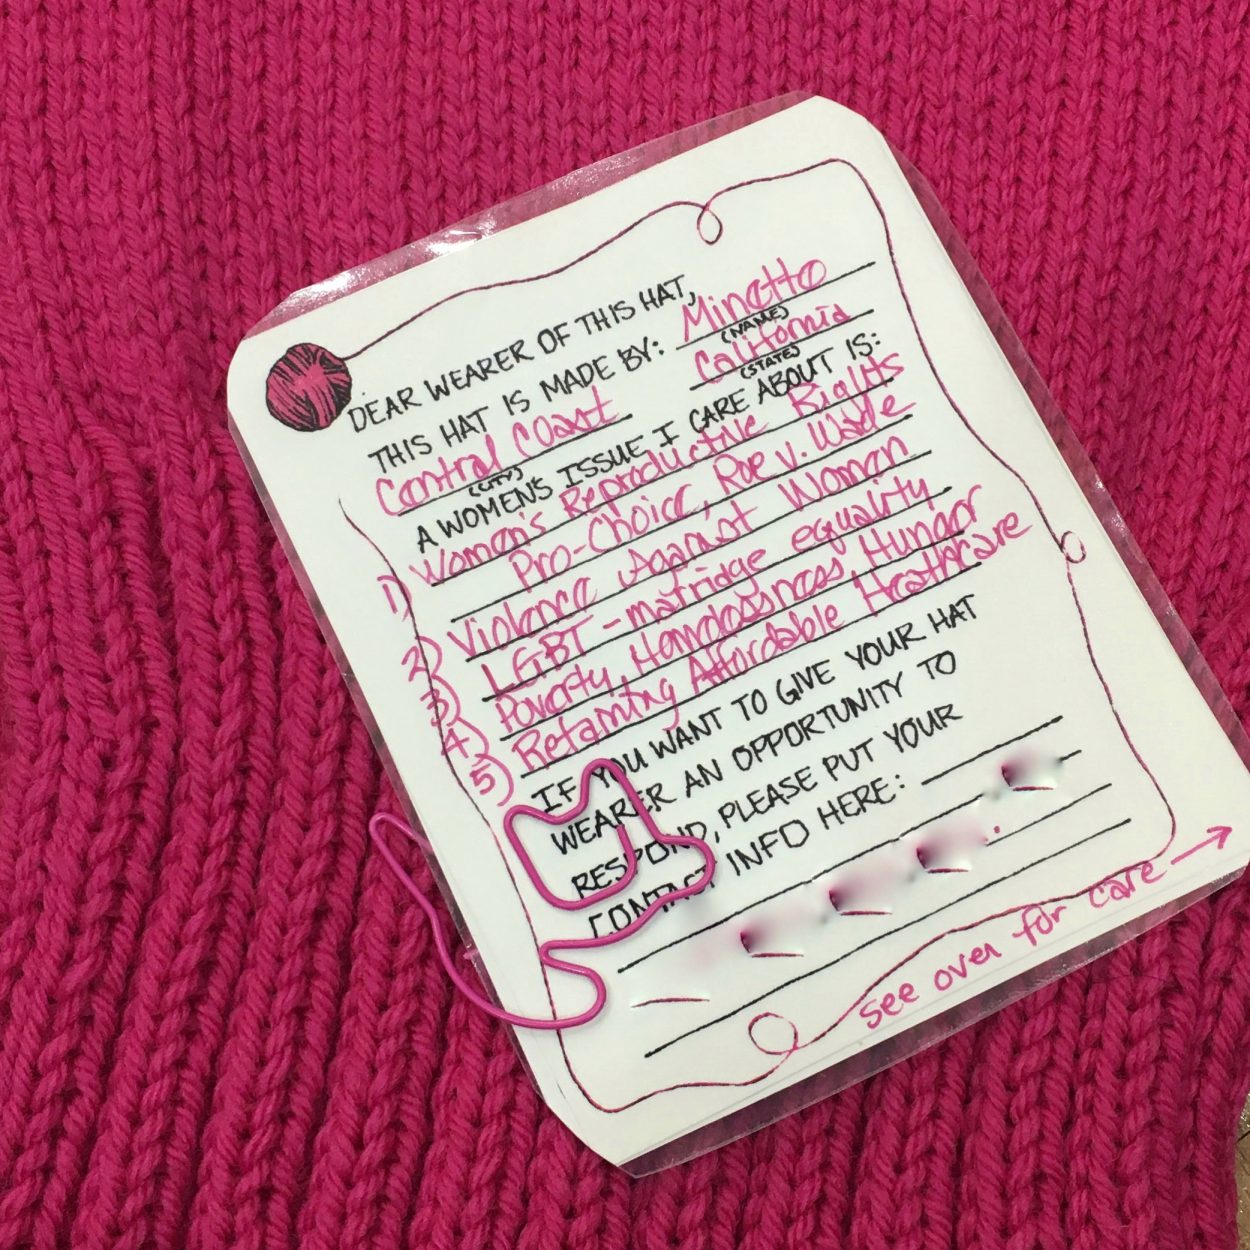 DEAR WEARER OF THIS HAT,
THIS HAT IS MADE BY: Minette
(NAME)
Central Coast California
(CITY) (STATE)
A WOMEN'S ISSUE I CARE ABOUT IS:
1) Women's Reproductive Rights
Pro-Choice, Roe v. Wade
2) Violence Against Women
3) LGBT - matridge equality
4) Poverty, Homelessness, Hunger
5) Retaining Affordable Heathcare
IF YOU WANT TO GIVE YOUR HAT
WEARER AN OPPORTUNITY TO
RESPOND, PLEASE PUT YOUR
CONTACT INFO HERE:
see over for care →